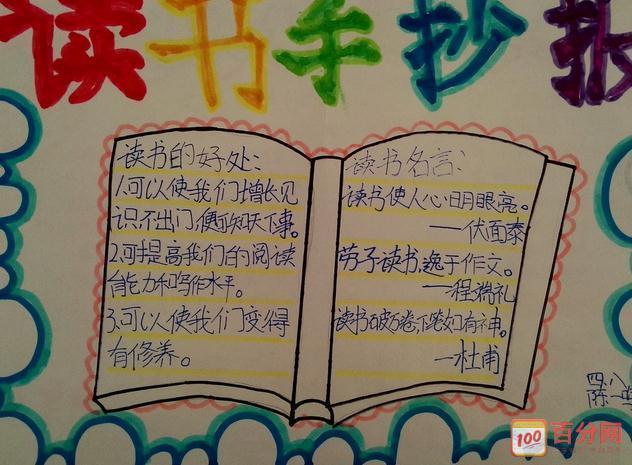 读书手抄报
读书的好处:
1.可以使我们增长见
识,不出门,便可知天下事。
2.可提高我们的阅读
能力和写作水平。
3.可以使我们变得
有修养。
读书名言:
读书使人心明眼亮。
——伏面泰
劳于读书,逸于作文。
——程端礼
读书破万卷,下笔如有神。
——杜甫
四、八
陈一
百分网
100